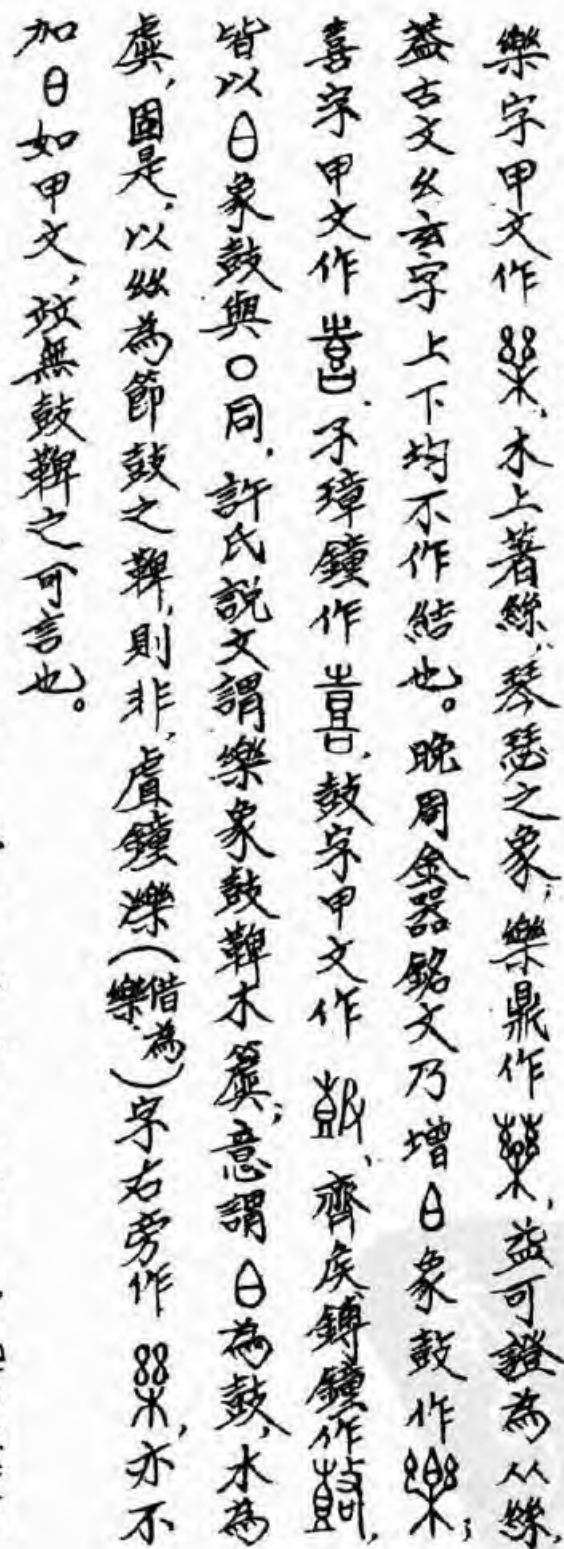 樂字甲文作，木上著絲，琴瑟之象；樂鼎作，益可證為从絲，
蓋古文幺玄字上下均不作結也。晚周金器銘文乃增象鼓作；
喜字甲文作，子璋鐘作，鼓字甲文作，齊侯鎛鐘作，
皆以象鼓與○同，許氏說文謂樂象鼓鞞木虡；意謂為鼓，木為
虡，固是，以絲為節鼓之鞞，則非，虘鐘濼（借為樂）字右旁作，亦不
加如甲文，故無鼓鞞之可言也。